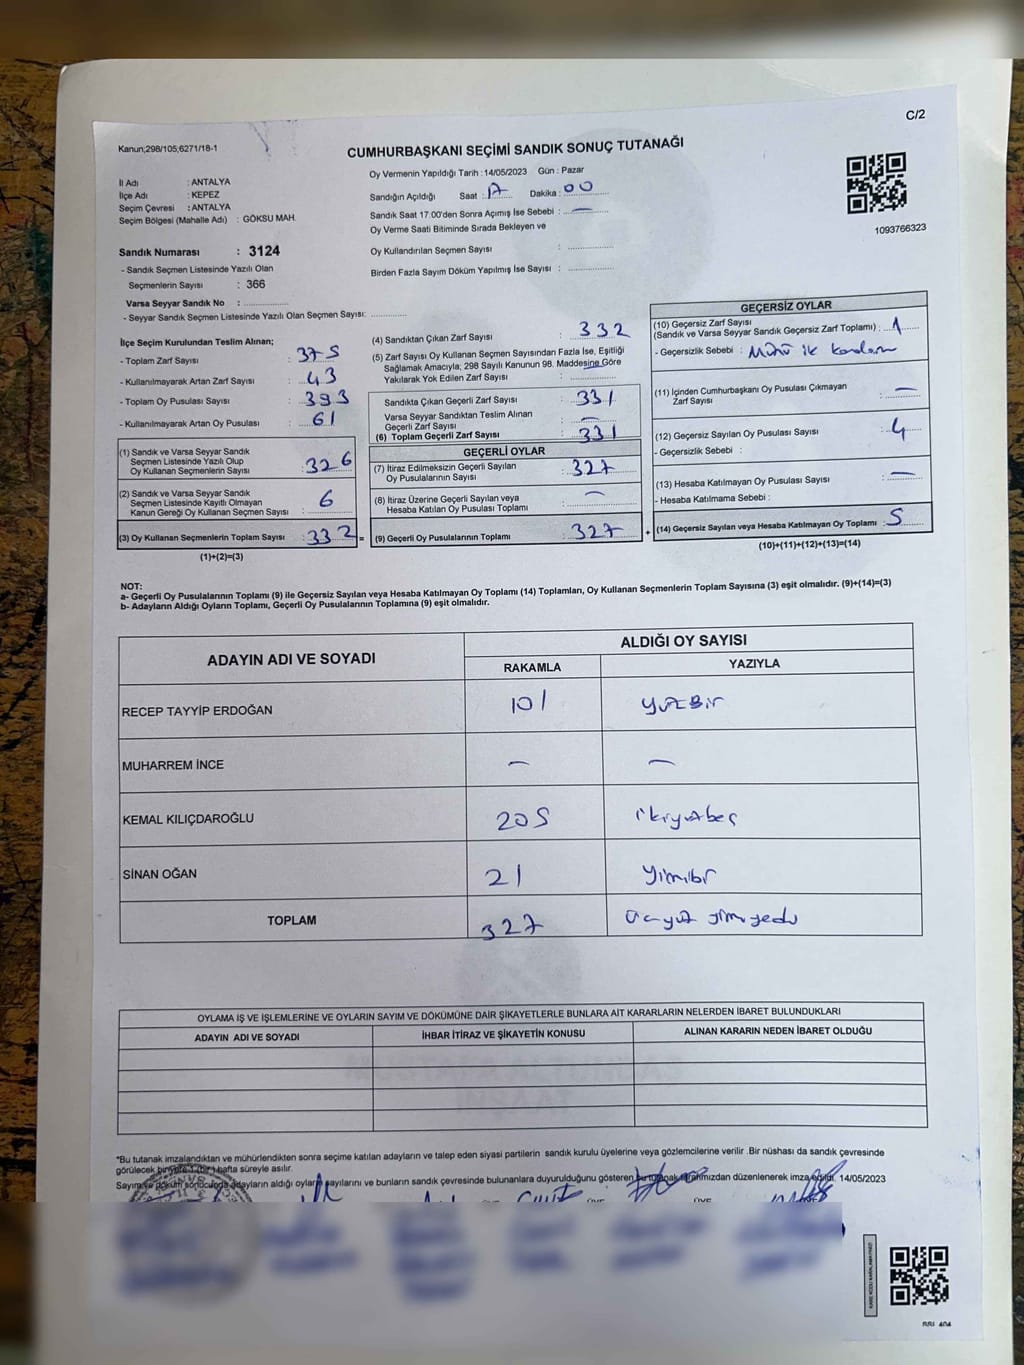 C/2
Kanun;298/105,6271/18-1
CUMHURBAŞKANI SEÇİMİ SANDIK SONUÇ TUTANAĞI
1093766323
İl Adı : ANTALYA
İlçe Adı : KEPEZ
Seçim Çevresi : ANTALYA
Seçim Bölgesi (Mahalle Adı) : GÖKSU MAH.
Oy Vermenin Yapıldığı Tarih : 14/05/2023 Gün : Pazar
Sandığın Açıldığı Saat : 17 Dakika : 00
Sandık Saat 17:00'den Sonra Açımış İse Sebebi : —
Oy Verme Saati Bitiminde Sırada Bekleyen ve
Oy Kullandırılan Seçmen Sayısı :
Birden Fazla Sayım Döküm Yapılmış İse Sayısı :
Sandık Numarası : 3124
- Sandık Seçmen Listesinde Yazılı Olan
Seçmenlerin Sayısı : 366
Varsa Seyyar Sandık No :
- Seyyar Sandık Seçmen Listesinde Yazılı Olan Seçmen Sayısı:
İlçe Seçim Kurulundan Teslim Alınan;
- Toplam Zarf Sayısı : 375
- Kullanılmayarak Artan Zarf Sayısı : 43
- Toplam Oy Pusulası Sayısı : 393
- Kullanılmayarak Artan Oy Pusulası : 61
(1) Sandık ve Varsa Seyyar Sandık
Seçmen Listesinde Yazılı Olup
Oy Kullanan Seçmenlerin Sayısı : 326
(2) Sandık ve Varsa Seyyar Sandık
Seçmen Listesinde Kayıtlı Olmayan
Kanun Gereği Oy Kullanan Seçmen Sayısı : 6
(3) Oy Kullanan Seçmenlerin Toplam Sayısı : 332 =
(1)+(2)=(3)
(4) Sandıktan Çıkan Zarf Sayısı : 332
(5) Zarf Sayısı Oy Kullanan Seçmen Sayısından Fazla İse, Eşitliği
Sağlamak Amacıyla; 298 Sayılı Kanunun 98. Maddesine Göre
Yakılarak Yok Edilen Zarf Sayısı :
Sandıkta Çıkan Geçerli Zarf Sayısı : 331
Varsa Seyyar Sandıktan Teslim Alınan
Geçerli Zarf Sayısı : —
(6) Toplam Geçerli Zarf Sayısı : 331
GEÇERLİ OYLAR
(7) İtiraz Edilmeksizin Geçerli Sayılan
Oy Pusulalarının Sayısı : 327
(8) İtiraz Üzerine Geçerli Sayılan veya
Hesaba Katılan Oy Pusulası Toplamı : —
(9) Geçerli Oy Pusulalarının Toplamı : 327 +
GEÇERSİZ OYLAR
(10) Geçersiz Zarf Sayısı
(Sandık ve Varsa Seyyar Sandık Geçersiz Zarf Toplamı) : 1
- Geçersizlik Sebebi :
(11) İçinden Cumhurbaşkanı Oy Pusulası Çıkmayan
Zarf Sayısı : —
(12) Geçersiz Sayılan Oy Pusulası Sayısı : 4
- Geçersizlik Sebebi :
(13) Hesaba Katılmayan Oy Pusulası Sayısı : —
- Hesaba Katılmama Sebebi :
(14) Geçersiz Sayılan veya Hesaba Katılmayan Oy Toplamı : 5
(10)+(11)+(12)+(13)=(14)
NOT:
a- Geçerli Oy Pusulalarının Toplamı (9) ile Geçersiz Sayılan veya Hesaba Katılmayan Oy Toplamı (14) Toplamları, Oy Kullanan Seçmenlerin Toplam Sayısına (3) eşit olmalıdır. (9)+(14)=(3)
b- Adayların Aldığı Oyların Toplamı, Geçerli Oy Pusulalarının Toplamına (9) eşit olmalıdır.
ADAYIN ADI VE SOYADI ALDIĞI OY SAYISI
RAKAMLA YAZIYLA
RECEP TAYYİP ERDOĞAN 101 yüzbir
MUHARREM İNCE — —
KEMAL KILIÇDAROĞLU 205 ikiyüzbeş
SİNAN OĞAN 21 yirmibir
TOPLAM 327 üçyüz yirmiyedi
OYLAMA İŞ VE İŞLEMLERİNE VE OYLARIN SAYIM VE DÖKÜMÜNE DAİR ŞİKAYETLERLE BUNLARA AİT KARARLARIN NELERDEN İBARET BULUNDUKLARI
ADAYIN ADI VE SOYADI İHBAR İTİRAZ VE ŞİKAYETİN KONUSU ALINAN KARARIN NEDEN İBARET OLDUĞU
*Bu tutanak imzalandıktan ve mühürlendikten sonra seçime katılan adayların ve talep eden siyasi partilerin sandık kurulu üyelerine veya gözlemcilerine verilir .Bir nüshası da sandık çevresinde
görülecek bir yere 1 (bir) hafta süreyle asılır.
Sayım ve döküm sonucunda adayların aldığı oyların sayıları ve bunların sandık çevresinde bulunanlara duyurulduğunu gösteren bu tutanak tarafımızdan düzenlenerek imza edildi. 14/05/2023